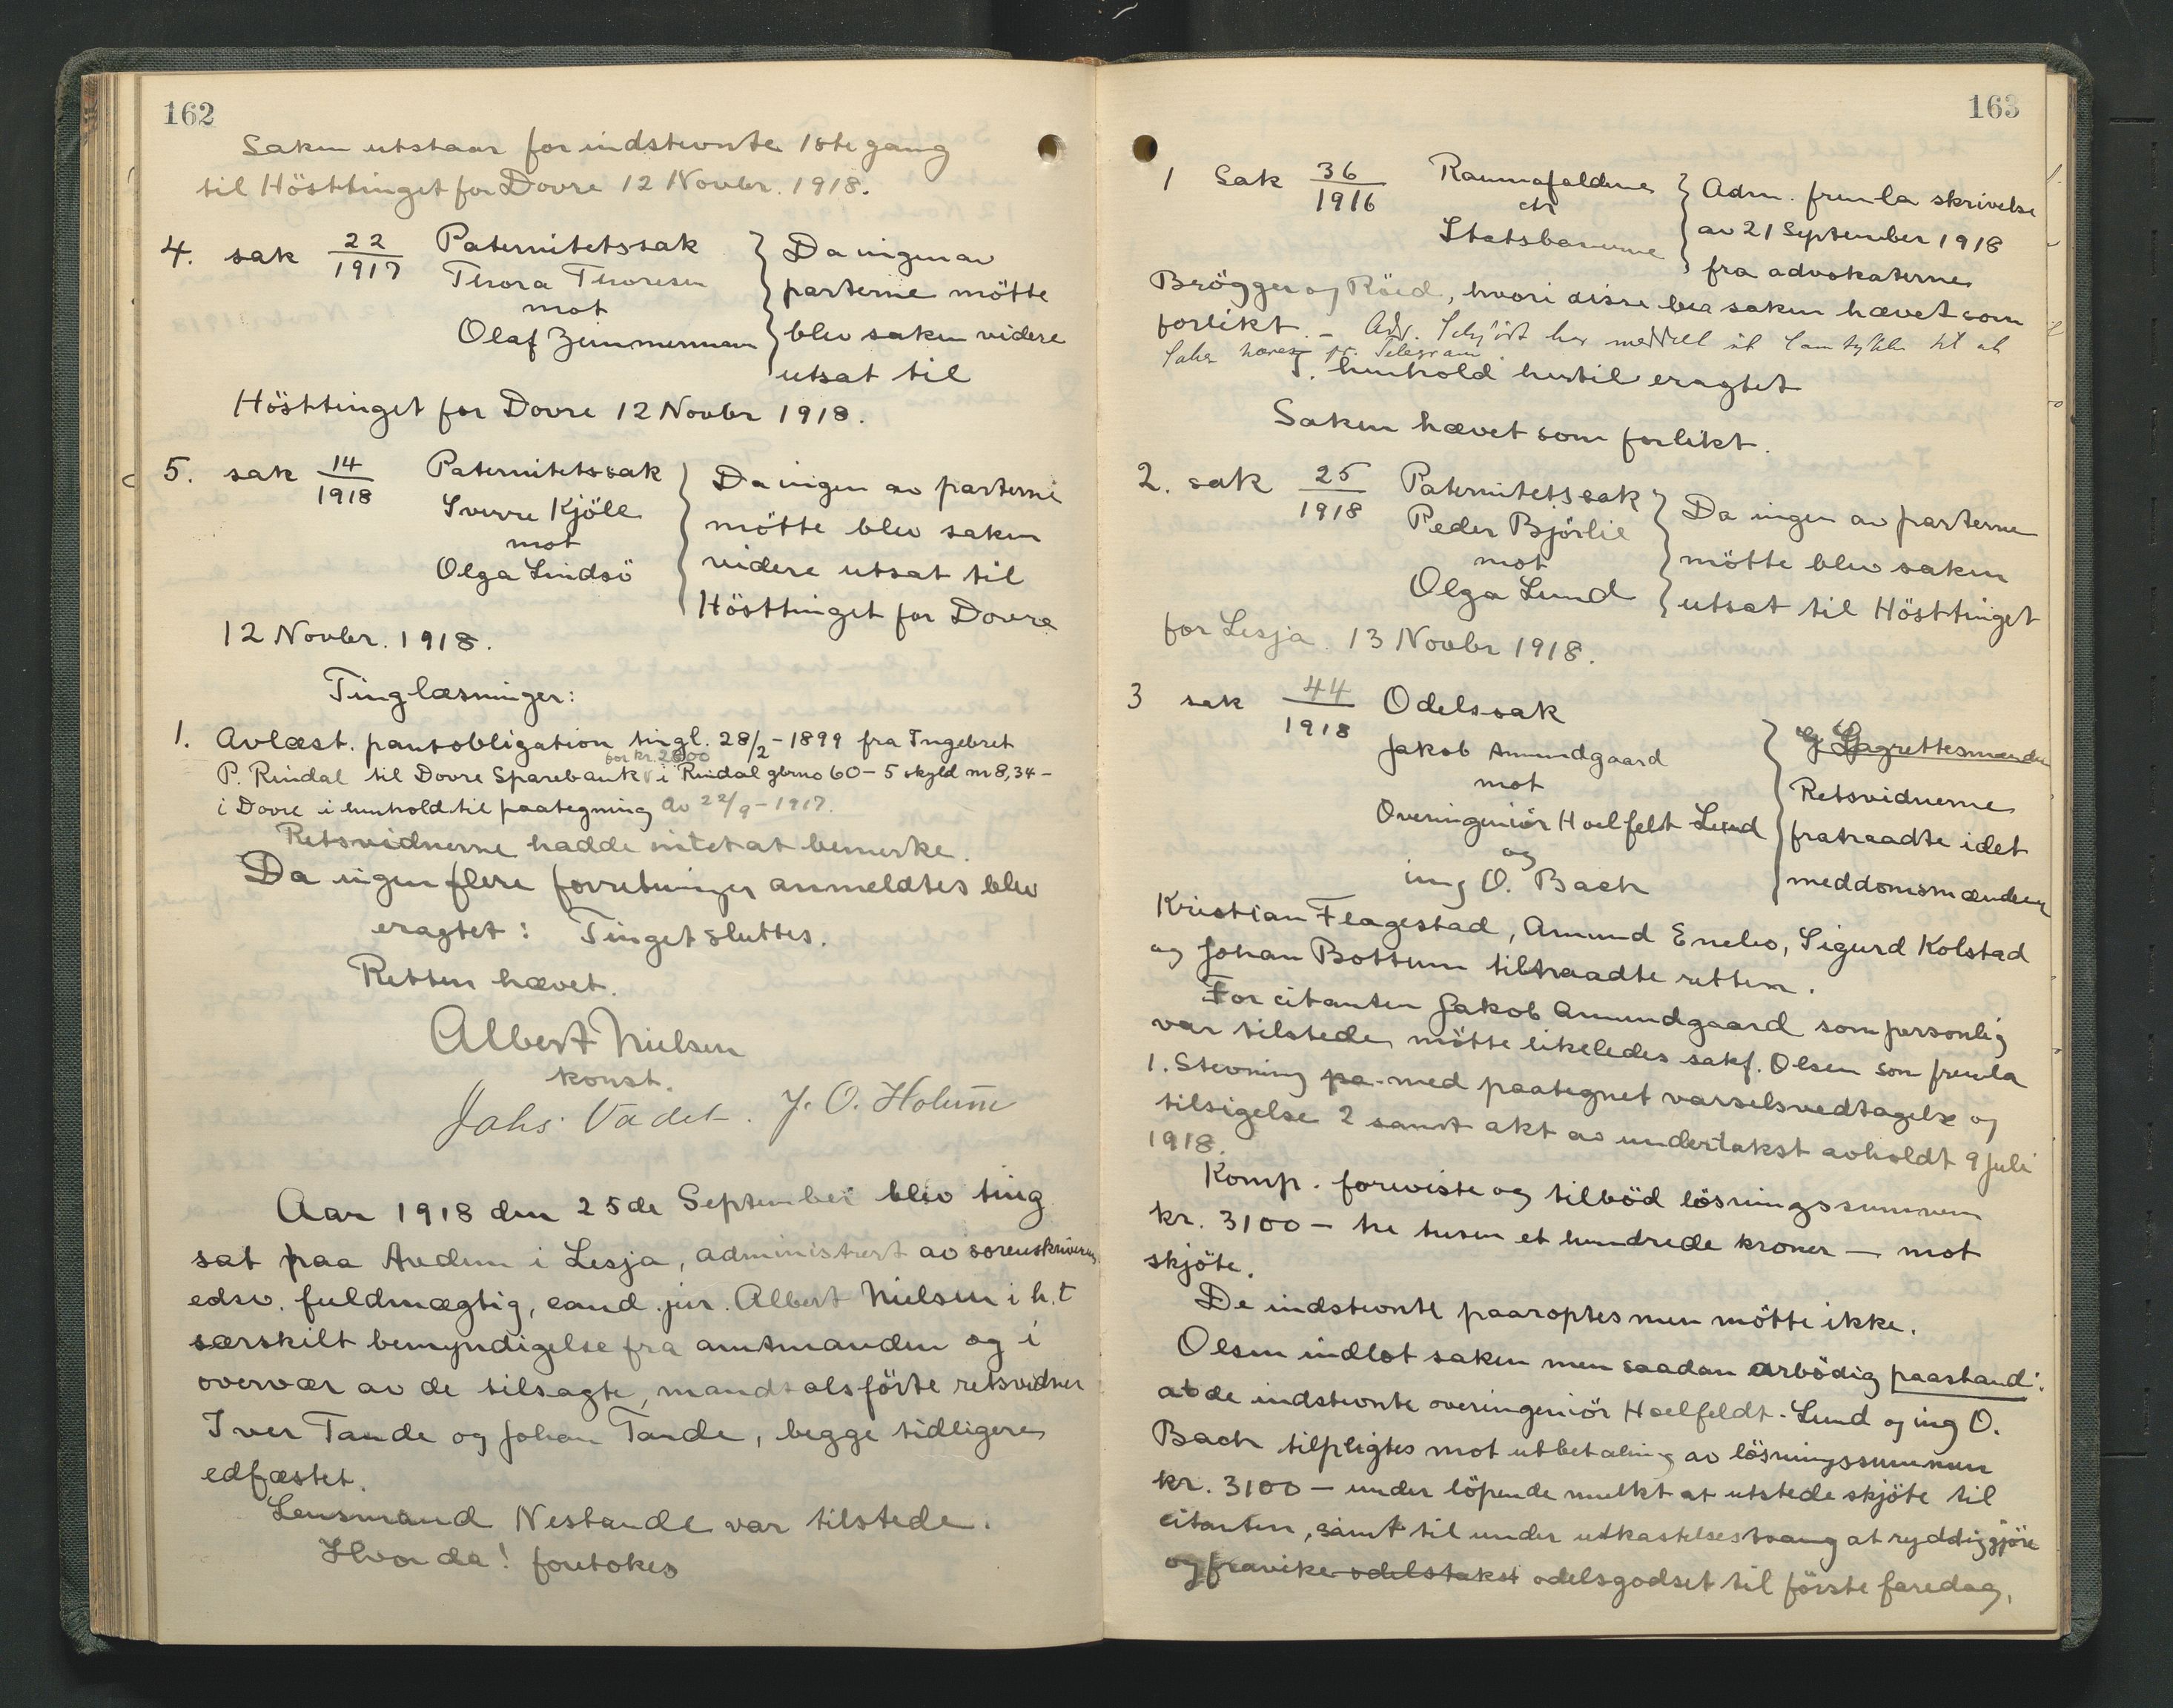 162
Saken utstaar for indstevnte 1ste gang
til Hösttinget for Dovre 12 Novbr. 1918.
4. sak 22/1917 Paternitetssak
Thora Thoresen
mot
Olaf Zimmerman
Da ingen av
parterne mötte
blev saken videre
utsat til
Hösttinget for Dovre 12 Novbr 1918.
5. sak 14/1918 Paternitetssak
Sverre Kjöle
mot
Olga Lindsö
Da ingen av parterne
mötte blev saken
videre utsat til
Hösttinget for Dovre
12 Novbr. 1918.
Tinglæsninger:
1. Avlæst. pantobligation tingl. 28/2-1899 fra Ingebret
for kr. 2800
P. Rindal til Dovre Sparebank i Rindal gbrno 60-5 skyld m 8,34-
i Dovre i henhold til paategning av 22/9-1917.
Retsvidnerne hadde intet at bemerke.
Da ingen flere forretninger anmeldtes blev
eragtet: Tinget sluttes.
Retten hævet.
Albert Nielsen
konst.
Johs. Vadet. J. O. Holum
Aar 1918 den 25de September blev ting
sat paa Avdem i Lesja, administrert av sorenskriverens
edsv. fuldmægtig, cand. jur. Albert Nielsen i h.t
særskilt bemyndigelse fra amtmanden og i
overvær av de tilsagte, mandtalsförte retsvidner
Iver Tande og Johan Tande, begge tidligere
edfæstet.
Lensmand Nestande var tilstede.
Hvor da! foretokes
163
1 Sak 36/1916 Raumafaldene
ctr
Statsbanerne
Adm. fremla skrivelse
av 21 September 1918
fra advokaterne
Brögger og Röed, hvori disse ber saken hævet som
forlikt. - Adv. Schjödt har meddelt sit samtykke til at
saken hæves pr. Telegram.
I henhold hertil eragtet
Saken hævet som forlikt.
2. sak 25/1918 Paternitetssak
Peder Bjorlie
mot
Olga Lund
Da ingen av parterne
mötte blev saken
utsat til Hösttinget
for Lesja 13 Novbr 1918.
3 sak 44/1918 Odelssak
Jakob Amundgaard
mot
Overingeniör Hoelfelt Lund
og
ing O. Bach
Lagrettesmænden
Retsvidnerne
fratraadte idet
meddomsmændene
Kristian Flagestad, Amund Enebo, Sigurd Kolstad
og Johan Bottum tiltraadte retten.
For citanten Jakob Amundgaard som personlig
var tilstede mötte likeledes sakf. Olsen som fremla
1. Stevning pa med paategnet varselsvedtagelse og
tilsigelse 2 samt akt av undertakst avholdt 9 Juli
1918.
Komp. foreviste og tilböd lösningssummen
kr. 3100 - tre tusen et hundrede kroner - mot
skjöte.
De indstevnte paaroptes men mötte ikke.
Olsen indlot saken men saadan ærbödig paastand:
at de indstevnte overingeniör Hoelfeldt-Lund og ing O.
Bach tilpligtes mot utbetaling av lösningssummen
kr. 3100 - under löpende mulkt at utstede skjöte til
citanten, samt til under utkastelsestvang at ryddiggjöre
og fravike odelstakst odelsgodset til förste faredag,